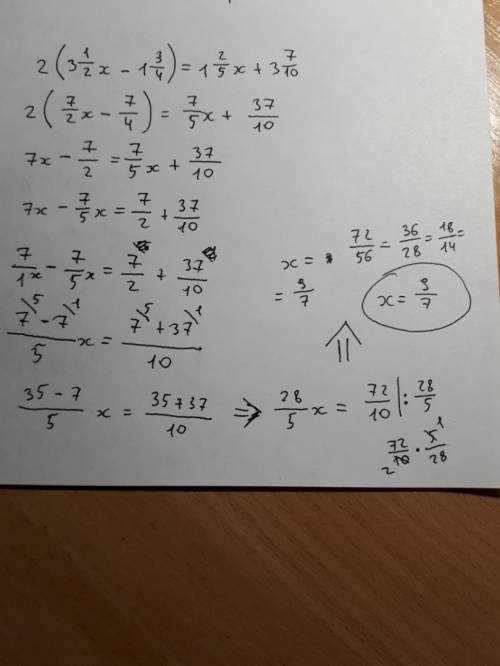 2(3 1/2 x - 1 3/4) = 1 2/5 x + 3 7/10
2(7/2 x - 7/4) = 7/5 x + 37/10
7x - 7/2 = 7/5 x + 37/10
7x - 7/5 x = 7/2 + 37/10
7/1 x - 7/5 x = 7/2 + 37/10
(7\5 - 7\1)/5 x = (7\5 + 37\1)/10
(35 - 7)/5 x = (35 + 37)/10 ⇒ 28/5 x = 72/10 | : 28/5
72/10 2 · 5 1/28
⇑
x = 72/56 = 36/28 = 18/14 =
= 9/7
x = 9/7